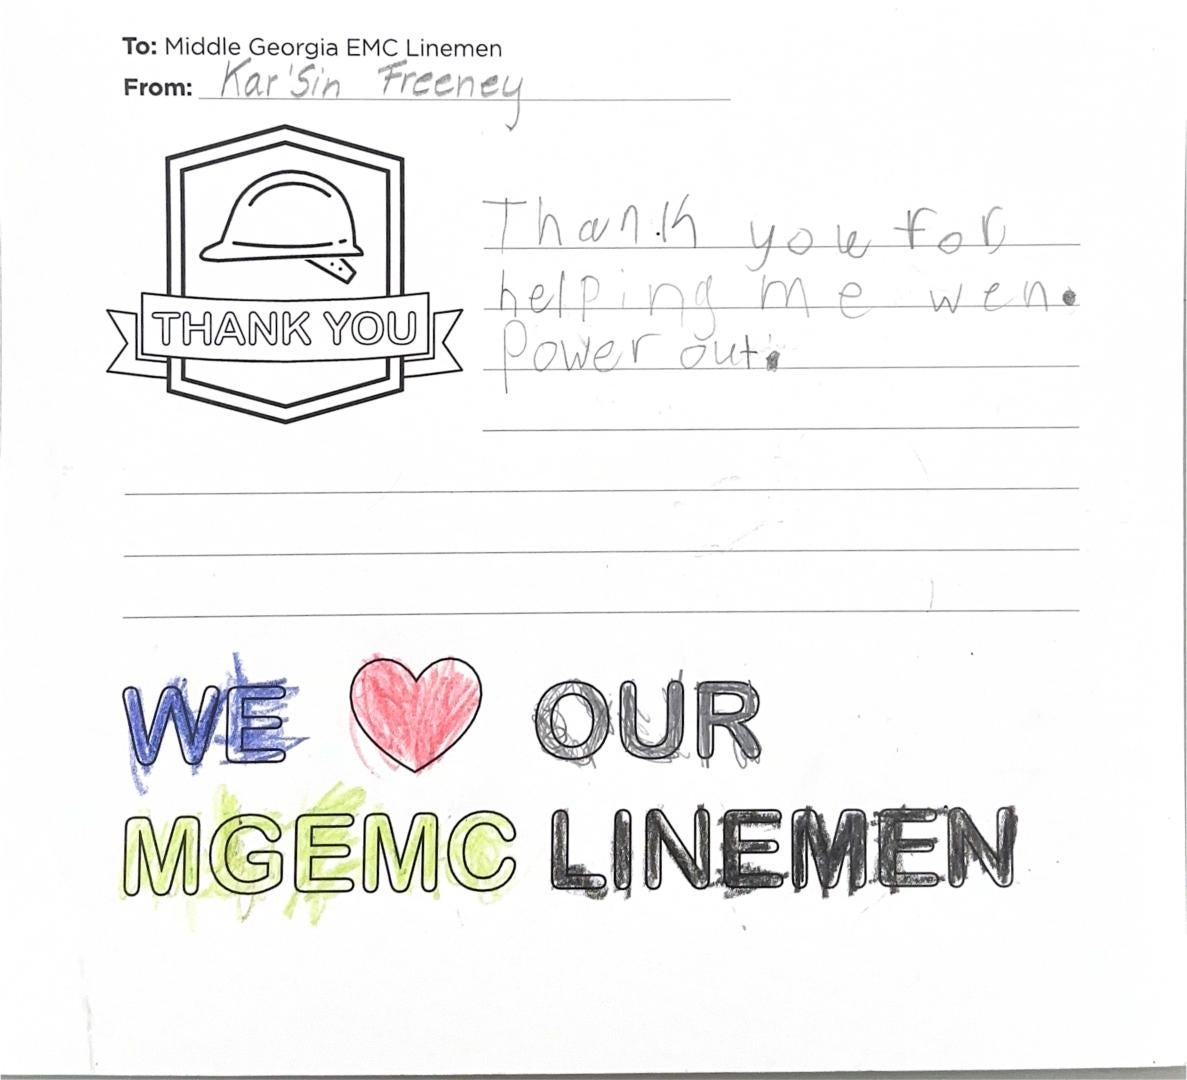 To: Middle Georgia EMC Linemen
From: Kar'Sin Freeney
THANK YOU
Thank you for
helping me wen.
Power out.
WE OUR
MGEMC LINEMEN